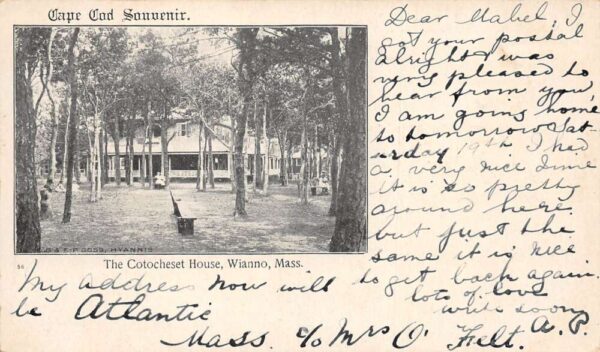 Cape Cod Souvenir.
Dear Mabel, I
got your postal
alright & was
very pleased to
hear from you,
I am going home
to tomorrow Sat-
urday 19th I had
a very nice time
it is so pretty
around here
but just the
same it is nice
to get back again.
lots of love
write soon
A. P.
W.B. & E.P. GOSS, HYANNIS
56
The Cotocheset House, Wianno, Mass.
My address now will
be Atlantic
Mass. c/o Mrs O. Felt.